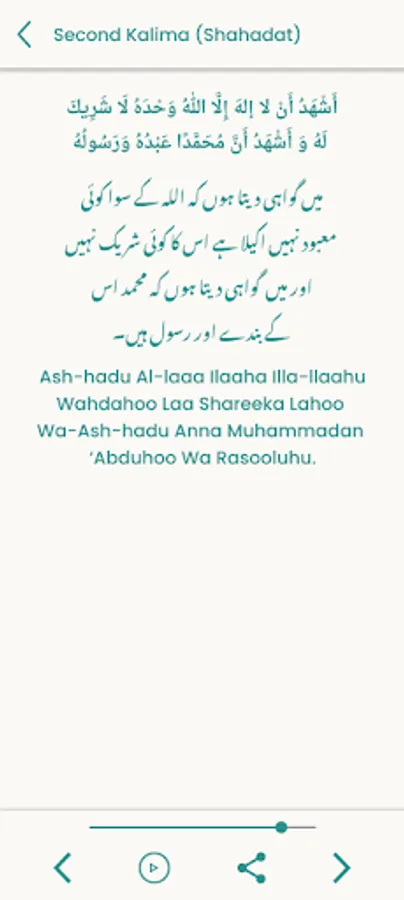 Second Kalima (Shahadat)
أَشْهَدُ أَنْ لا إلهَ إِلَّا اللّٰهُ وَحْدَهُ لَا شَرِيكَ
لَهُ وَ أَشْهَدُ أَنَّ مُحَمَّدًا عَبْدُهُ وَرَسُولُهُ
میں گواہی دیتا ہوں کہ اللہ کے سوا کوئی
معبود نہیں اکیلا ہے اس کا کوئی شریک نہیں
اور میں گواہی دیتا ہوں کہ محمد اس
کے بندے اور رسول ہیں۔
Ash-hadu Al-laaa Ilaaha Illa-llaahu
Wahdahoo Laa Shareeka Lahoo
Wa-Ash-hadu Anna Muhammadan
‘Abduhoo Wa Rasooluhu.